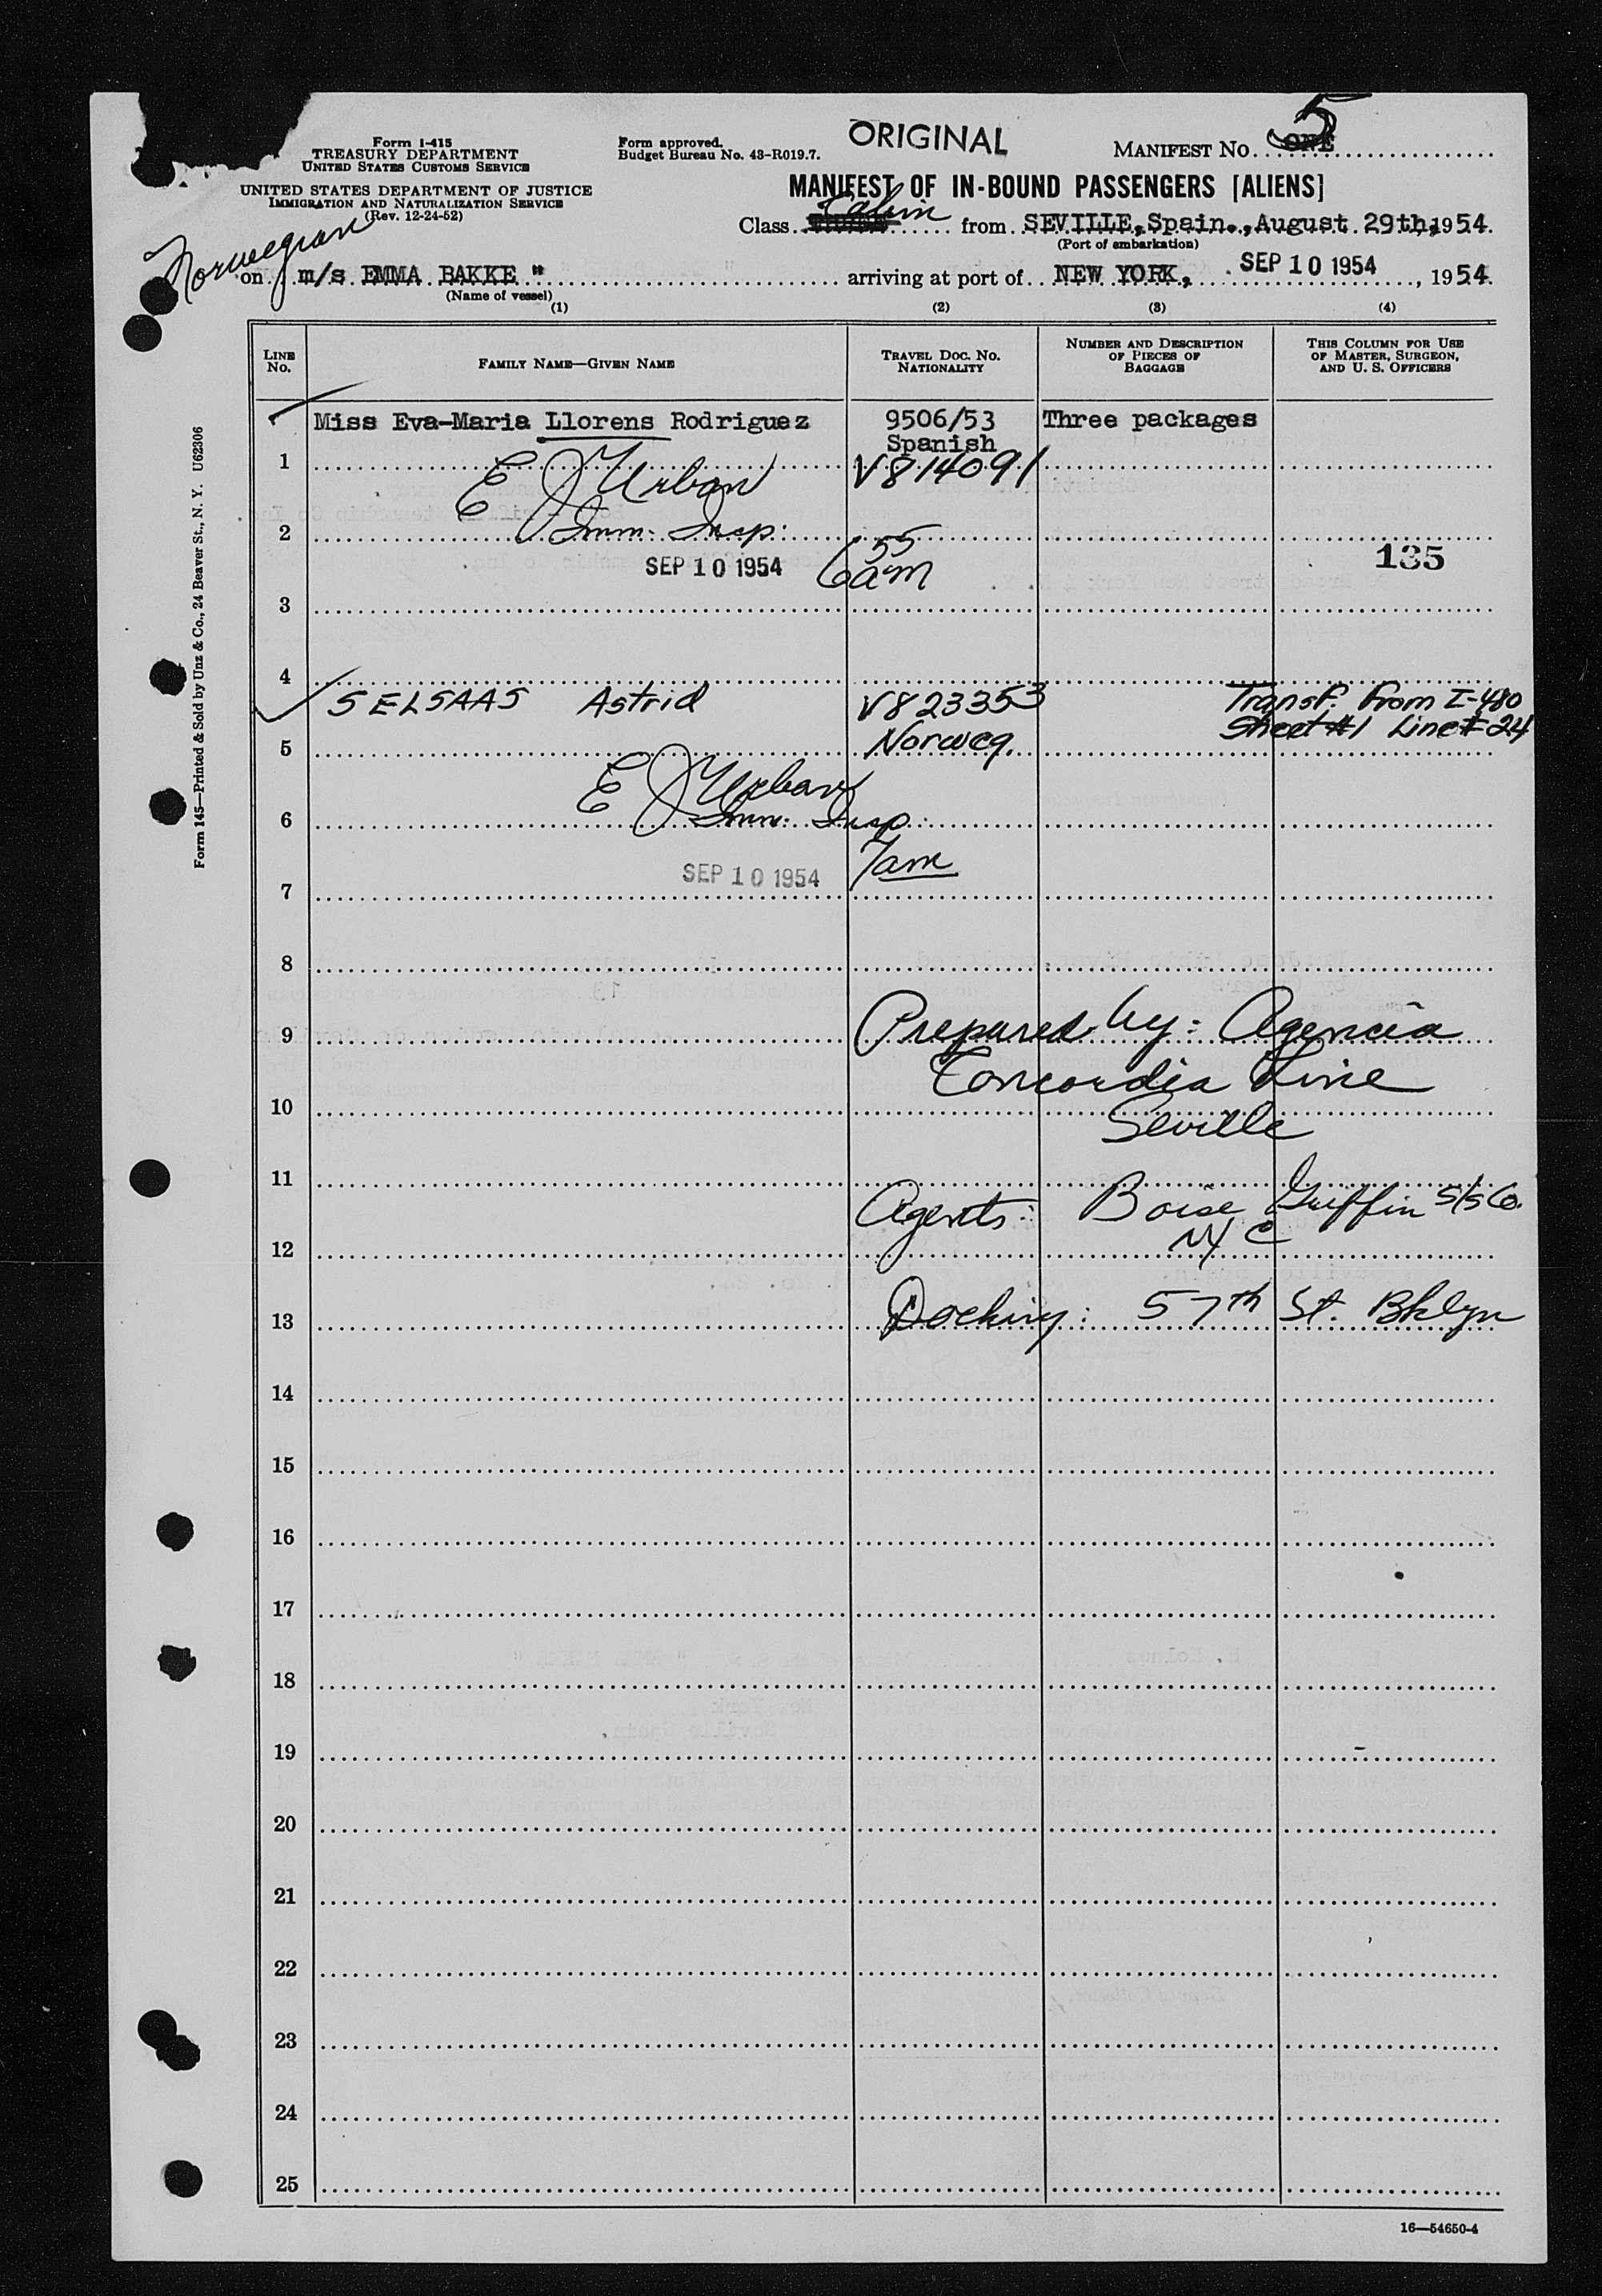 ORIGINAL
5
Form I-415
TREASURY DEPARTMENT
UNITED STATES CUSTOMS SERVICE
Form approved.
Budget Bureau No. 43-R019.7.
MANIFEST NO. ONE
UNITED STATES DEPARTMENT OF JUSTICE
IMMIGRATION AND NATURALIZATION SERVICE
(Rev. 12-24-52)
MANIFEST OF IN-BOUND PASSENGERS [ALIENS]
Class Cabin from SEVILLE, Spain., August 29th, 1954.
(Port of embarkation)
Norwegian
on m/s EMMA BAKKE " arriving at port of NEW YORK, SEP 10 1954, 1954.
(Name of vessel)
(1) (2) (3) (4)
LINE NO. FAMILY NAME—GIVEN NAME TRAVEL DOC. NO. NATIONALITY NUMBER AND DESCRIPTION OF PIECES OF BAGGAGE THIS COLUMN FOR USE OF MASTER, SURGEON, AND U. S. OFFICERS
Miss Eva-Maria Llorens Rodriguez 9506/53 Three packages
Spanish
1 E J Urban V814091
2 Imm. Insp.
SEP 10 1954 6 55 am 135
3
4
SELSAAS Astrid V823353 Transf. From I-480
Norweg. Sheet #1 Line #24
5
E J Urban
6 Imm. Insp.
SEP 10 1954 7am
7
8
9 Prepared by: Agencia
Concordia Line
10
Seville
11
Agents: Boise Griffin S/S Co.
12 NYC
13 Docking: 57th St. Bklyn
14
15
16
17
18
19
20
21
22
23
24
25
16—54650-4
Form 145—Printed & Sold by Unz & Co., 24 Beaver St., N. Y. U62306